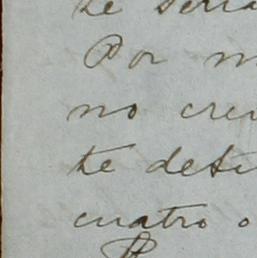 te serra
Por m
no crei
te dete
cuatro o